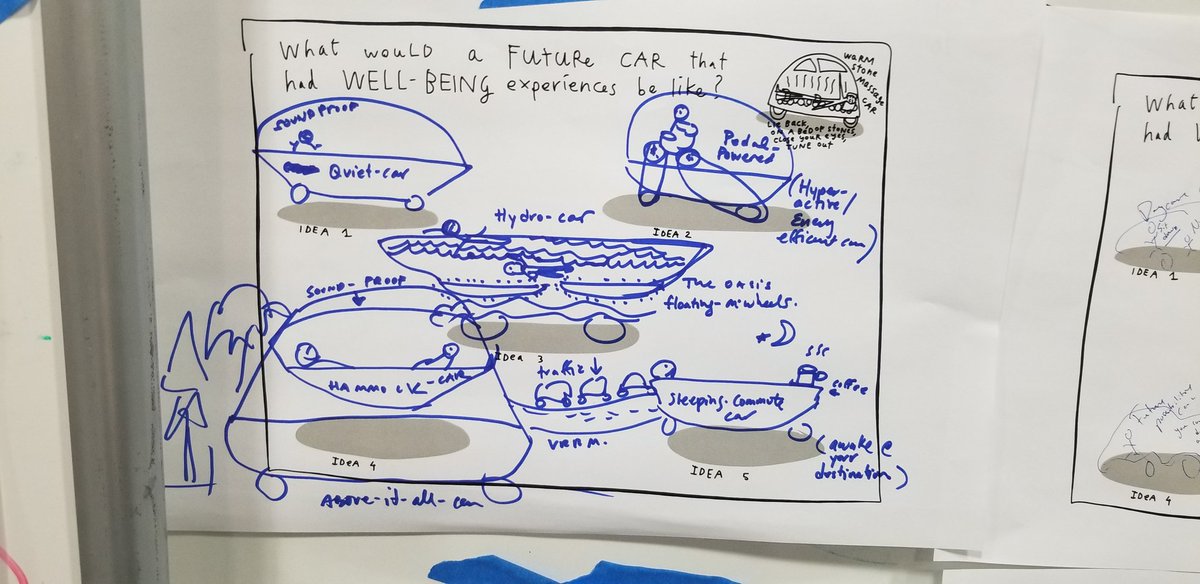 What would a FUTURE CAR that
had WELL-BEING experiences be like?
WARM
STONE
MASSAGE
CAR
LIE BACK,
ON A BED OF STONES,
CLOSE YOUR EYES,
TUNE OUT
SOUNDPROOF
Quiet-car
IDEA 1
Pedal-
Powered
(Hyper-
active/
Energy
efficient car)
IDEA 2
Hydro-car
The oasis
floating-on-wheels.
IDEA 3
SOUND-PROOF
HAMMOCK-CAR
IDEA 4
Above-it-all-car
traffic
VRRM.
SSS
coffee
Sleeping-commute
car
(awake @
your
destination)
IDEA 5
What
had
IDEA 1
Future
IDEA 4